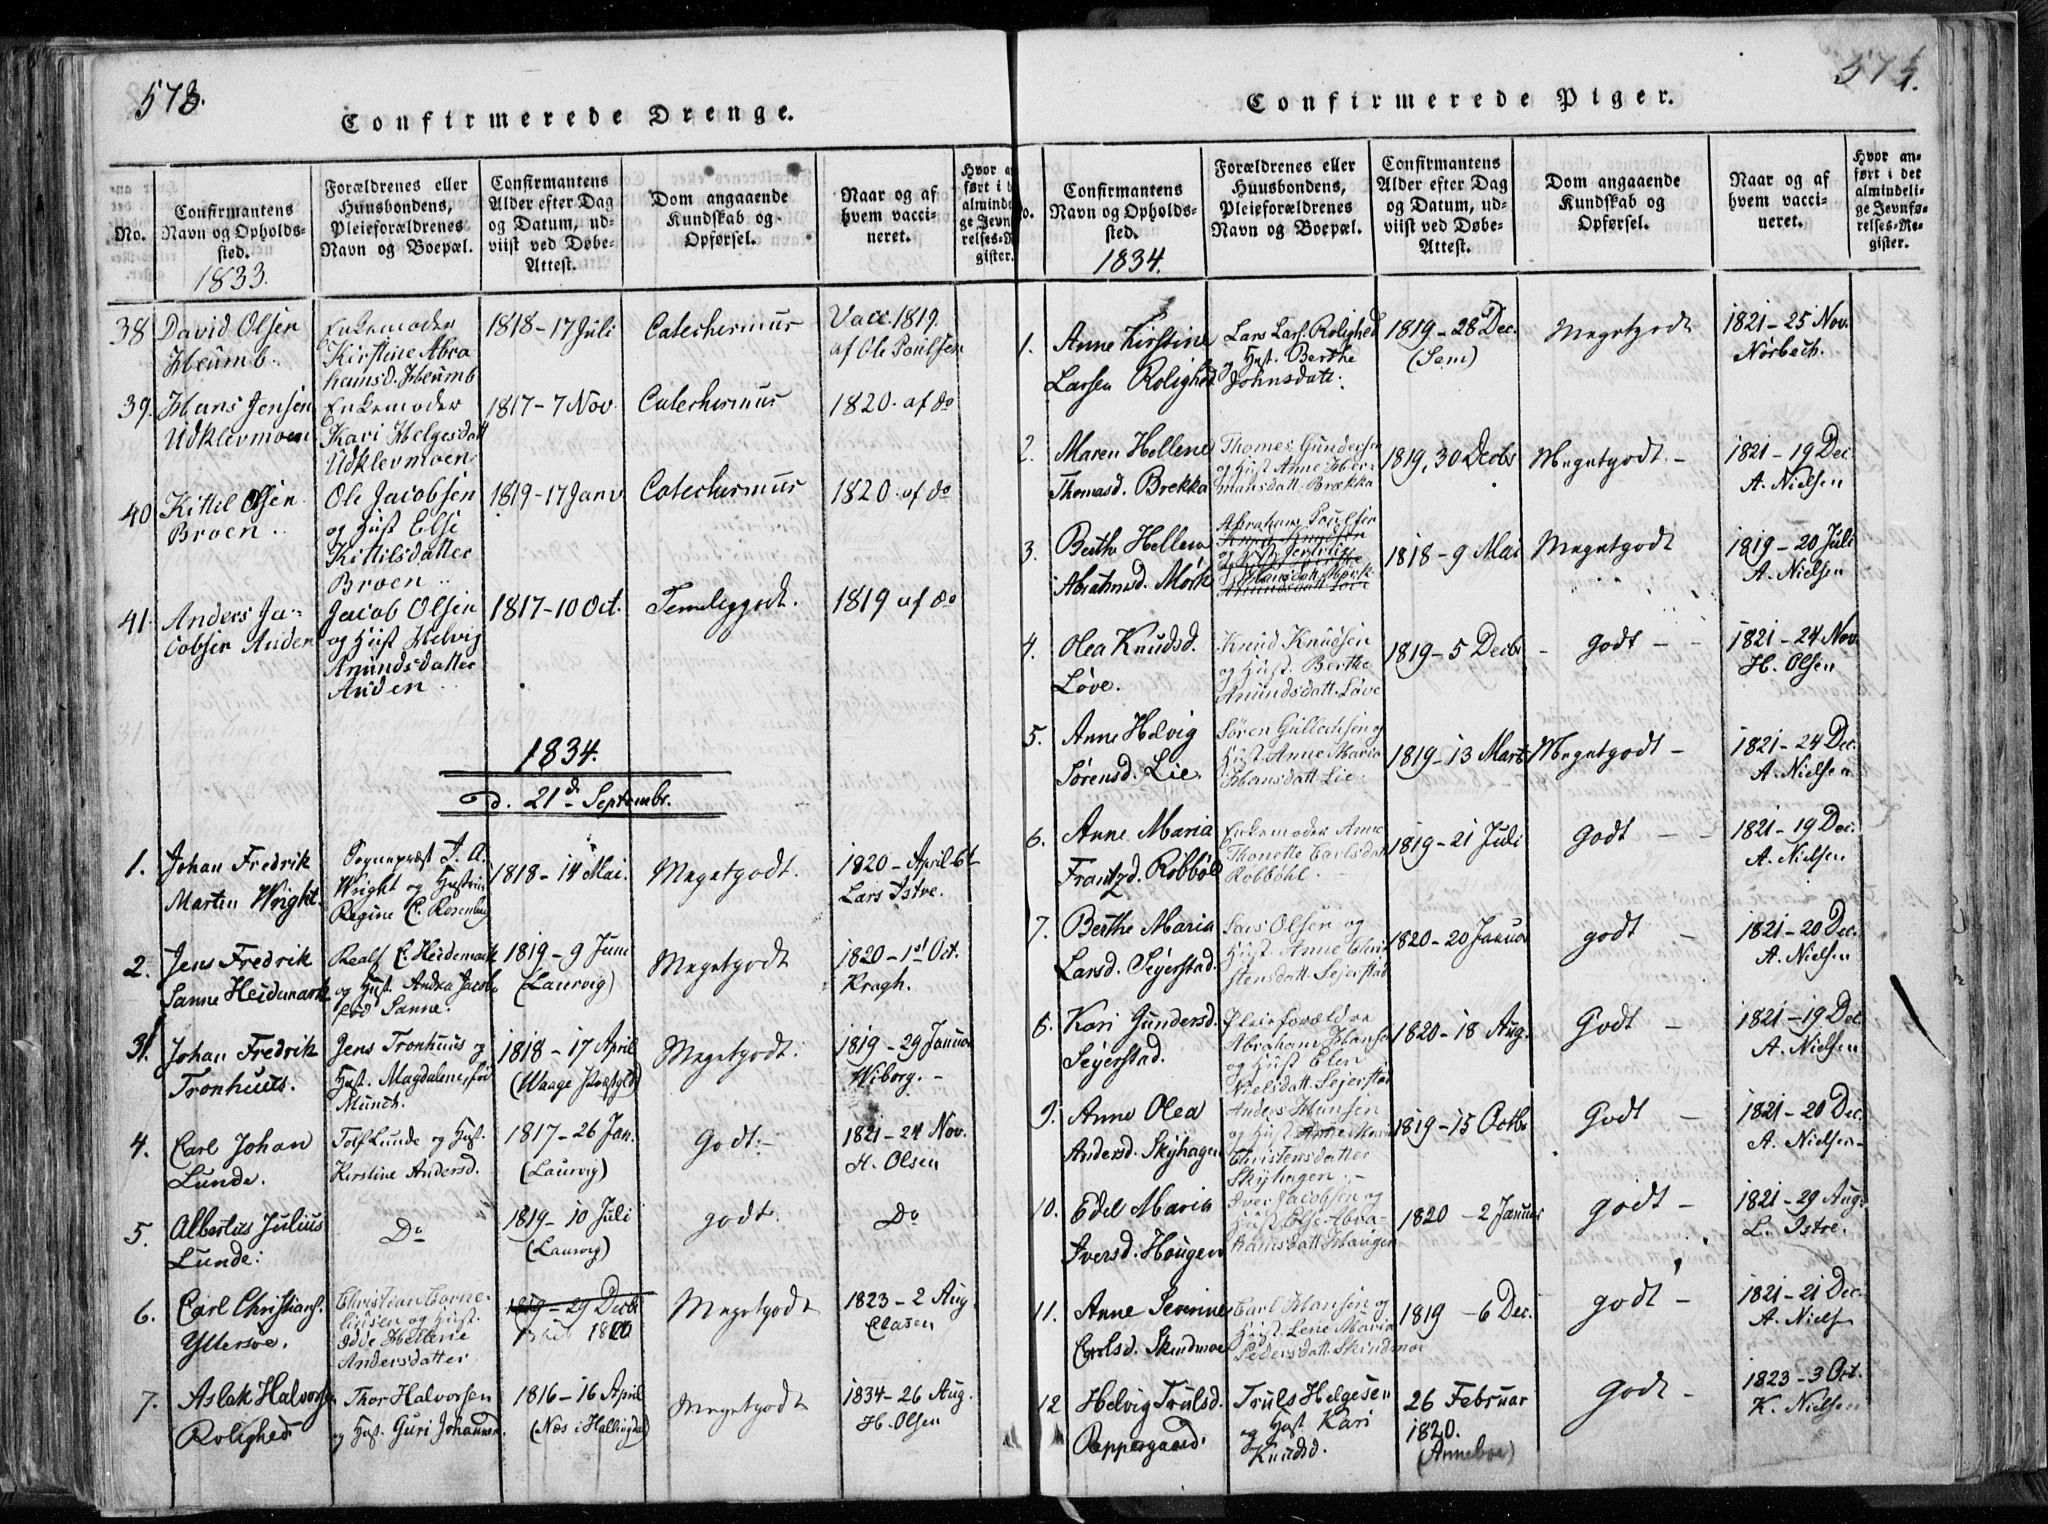 573.
Confirmerede Drenge.
No.
Confirmantens
Navn og Opholds-
sted.
1833.
Forældrenes eller
Huusbondens,
Pleieforældrenes
Navn og Boepæl.
Confirmantens
Alder efter Dag
og Datum, ud-
viist ved Døbe-
Attest.
Dom angaaende
Kundskab og
Opførsel.
Naar og af
hvem vacci-
neret.
38 David Olsen
Heumb.
Enkemoder
Kirstine Abra
hamsd. Heumb
1818-17 Juli
Catechermus
Vacc. 1819.
af Ole Poulsen
39. Hans Jensen
Udklevmoen
Enkemoder
Kari Helgesdatt
Udklevmoen
1817-7 Nov.
Catechermus
1820. af do
40 Kittil Olsen
Broen ..
Ole Jacobsen
og Hust Else
Kittilsdatter
Broen ..
1819-17 Janv
Catechermus
1820. af do
41. Anders Ja-
cobsen Anden
Jacob Olsen
og Hust Helvig
Amundsdatter
Anden ..
1817-10 Oct.
Temeliggodt.
1819 af do
1834.
d. 21d Septembr.
1. Johan Fredrik
Martin Wright.
Sognepræst J. A.
Wright og Hustrue
Regine C. Rosenberg
1818-14 Mai.
Megetgodt.
1820-April 6t
Lars Istre.
2. Jens Fredrik
Sanne Heidemark
Realf C. Heidemark
og Hust. Andrea Jacobe
fød Sanne.
1819-9 Juni
(Laurvig)
Megetgodt
1820-1st Oct.
Kragh.
3. Johan Fredrik
Tronhuus.
Jens Tronhuus og
Hust. Magdalene, fød
Munch.
1818-17 April
(Waage Præstgld)
Megetgodt.
1819-29 Januar
Wiborg. -
4. Carl Johan
Lunde.
Tolf Lunde og Hust.
Kirstine Andersd.
1817-26 Jan.
(Laurvig)
Godt.-
1821-24 Nov.
H. Olsen
5. Albertus Julius
Lunde.
Do
1819-10 Juli
(Laurvig)
godt.
Do
6. Carl Christians.
Yttersøe.
Christian Corne-
liusen og Hust.
Idde Hellene
Andersdatter
1819-29 Decbr
1820
Megetgodt
1823-2 Aug.
Clasen
7. Aslak Halvors.
Rolighed
Thor Halvorsen
og Hust. Guri Johannesd.
1816-16 April
(Næs i Hallingdal)
Megetgodt
1834-26 Aug.
H. Olsen
574.
Confirmerede Piger.
Confirmantens
Navn og Opholds-
sted.
1834.
Forældrenes eller
Huusbondens,
Pleieforældrenes
Navn og Boepæl.
Confirmantens
Alder efter Dag
og Datum, ud-
viist ved Døbe-
Attest.
Dom angaaende
Kundskab og
Opførsel.
Naar og af
hvem vacci-
neret.
Hvor an-
ført i det
almindeli-
ge Jevnfø-
relses-Re-
gister.
1. Anne Kirstine
Larsen Rolighed
Lars Lars. Rolighed
og Hust. Berthe
Johnsdatt.
1819-28 Dec.
(Sem)
Megetgodt
1821-25 Nov.
Nørbech.
2. Maren Hellene
Thomasd. Brekka
Thomes Gundersen
og Hust Anne Her-
mansdatt. Brækka
1819, 30 Decbr
Megetgodt -
1821-19 Dec.
A. Nielsen
3. Berthe Hellene
Abrahmsd. Mørk
Abraham Poulsen
Knud Knudsen
Amundsdatt Løve
1818-9 Mai
Megetgodt
1819-20 Juli
A. Nielsen
4. Olea Knudsd.
Løve.
Knud Knudsen
og Hust. Berthe
Amundsdatt. Løve
1819-5 Decbr
- godt -
1821-24 Nov.
H. Olsen
5. Anne Helvig
Sørensd. Lie.
Søren Gullichsen og
Hust Anne Maria
Hansdatt. Lie.
1819-13 Marts
Megetgodt -
1821-24 Dec.
A. Nielsen
6. Anne Maria
Frantzd. Robbøl
Enkemoder Anne
Thonette Carlsdatt
Robbøhl.
1819-21 Juli
Godt -
1821-19 Dec.
A. Nielsen
7. Berthe Maria
Larsd. Seyerstad.
Lars Olsen og
Hust Anne Chri
stensdatt. Sejerstad
1820-20 Januar
godt -
1821-20 Dec.
A. Nielsen
8. Kari Gundersd.
Seyerstad.
Pleieforældre
Abraham Hansen
og Hust Elen
Nielsdatt. Sejerstad
1820-18 Aug.
Godt -
1821-19 Dec.
A. Nielsen
9. Anne Olea
Andersd. Skyhagen
Anders Hansen
og Hust Anne Marie
Christensdatter
Skyhagen.-
1819-15 Octbr
Godt -
1821-20 Dec.
A. Nielsen
10. Edel Maria
Iversd. Hougen
Iver Jacobsen og
Hust Else Abra-
hamsdatt Haugen
1820 -2 Januar
godt -
1821-29 Aug.
L. Istre.
11. Anne Severine
Carlsd. Skindmoe
Carl Hansen og
Hust. Lene Maria
Pedersdatt. Skindmoe
1819 -6 Dec.
godt -
1821-21 Dec.
A. Nielsen
12 Helvig Trulsd.
Peppergaard.
Truls Helgesen
og Hust Kari
Knudsd.
26 Februar
1820.
(Anneboe)
Godt -
1823-3 Oct.
K. Nielsen